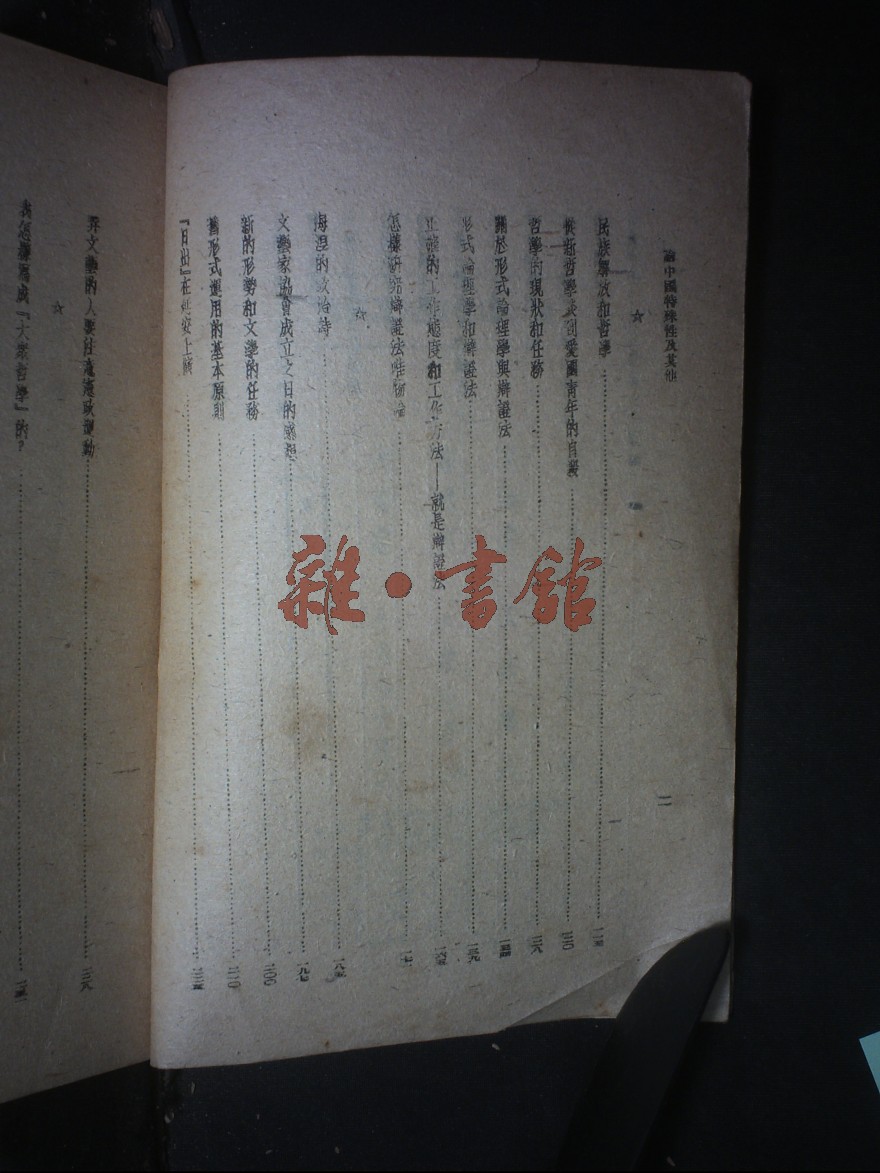 論中國特殊性及其他
二
☆
民族解放和哲學…………一一五
從新哲學談到愛國青年的自要…………一二〇
哲學的現狀和任務…………一二八
關於形式論理學與辯證法…………
形式論理學和辯證法…………一五九
正確的工作態度和工作方法——就是辯證法…………
怎樣研究辯證法唯物論…………
☆
海涅的政治詩…………一八五
文藝家協會成立之日的感想…………一九七
新的形勢和文學的任務…………二〇〇
舊形式運用的基本原則…………二一〇
『日出』在延安上演…………二二五
弄文藝的人要注意憲政運動…………二二八
☆
我怎樣寫成『大衆哲學』的?…………
雜·書館